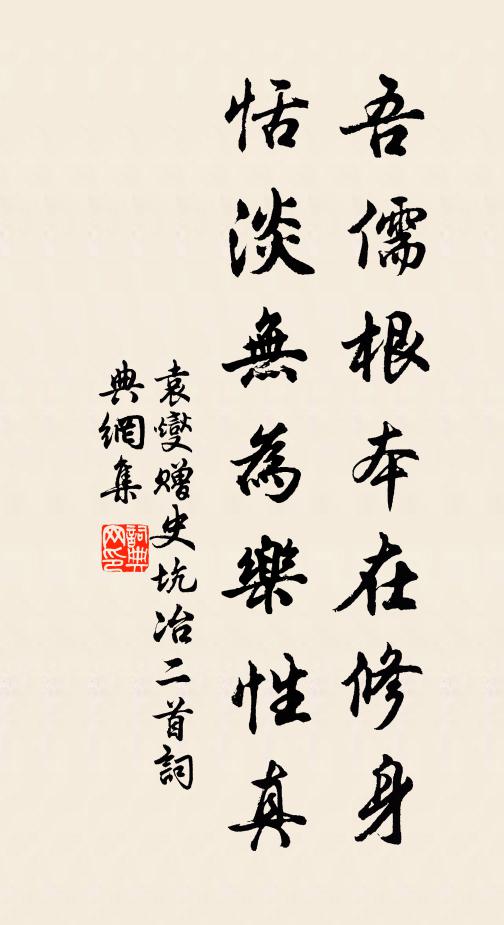 吾儒根本在修身
恬淡無為樂性真
袁燮贈史坑冶二首詞
典網集
詞典網印